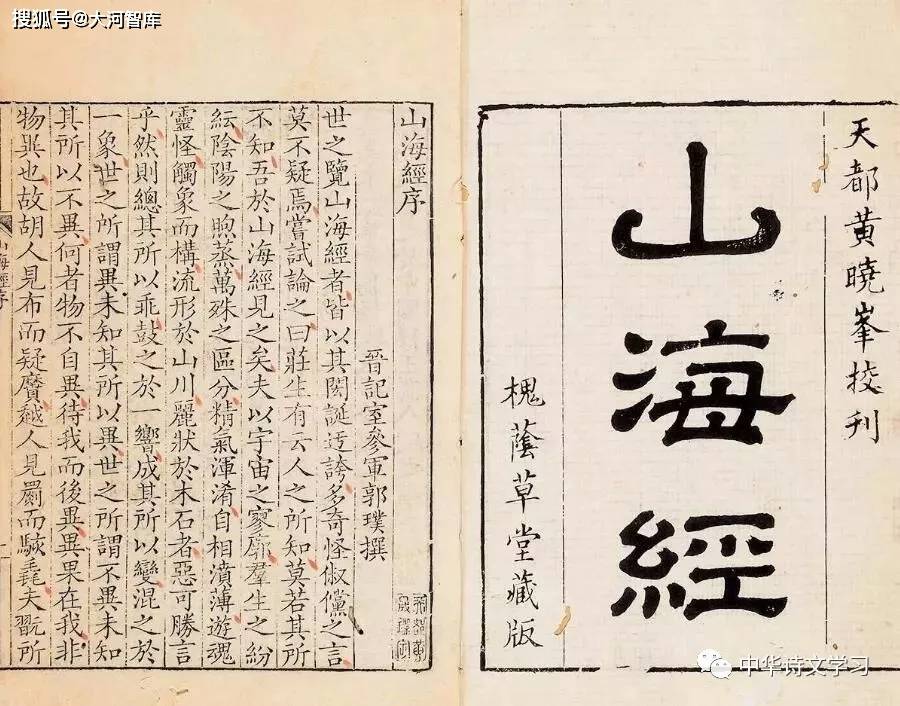 搜狐号@大河智库
天都黃曉峯挍刊
山海經
槐蔭草堂藏版
山海經序
晉記室參軍郭璞撰
世之覽山海經者皆以其閎誕迂誇多奇怪俶儻之言
莫不疑焉嘗試論之曰莊生有云人之所知莫若其所
不知吾於山海經見之矣夫以宇宙之寥廓羣生之紛
紜陰陽之煦蒸萬殊之區分精氣渾淆自相濆薄遊魂
靈怪觸象而構流形於山川麗狀於木石者惡可勝言
乎然則總其所以乖鼓之於一響成其所以變混之於
一象世之所謂異未知其所以異世之所謂不異未知
其所以不異何者物不自異待我而後異異果在我非
物異也故胡人見布而疑黂越人見罽而駭毳夫翫所
山海經序
中华诗文学习